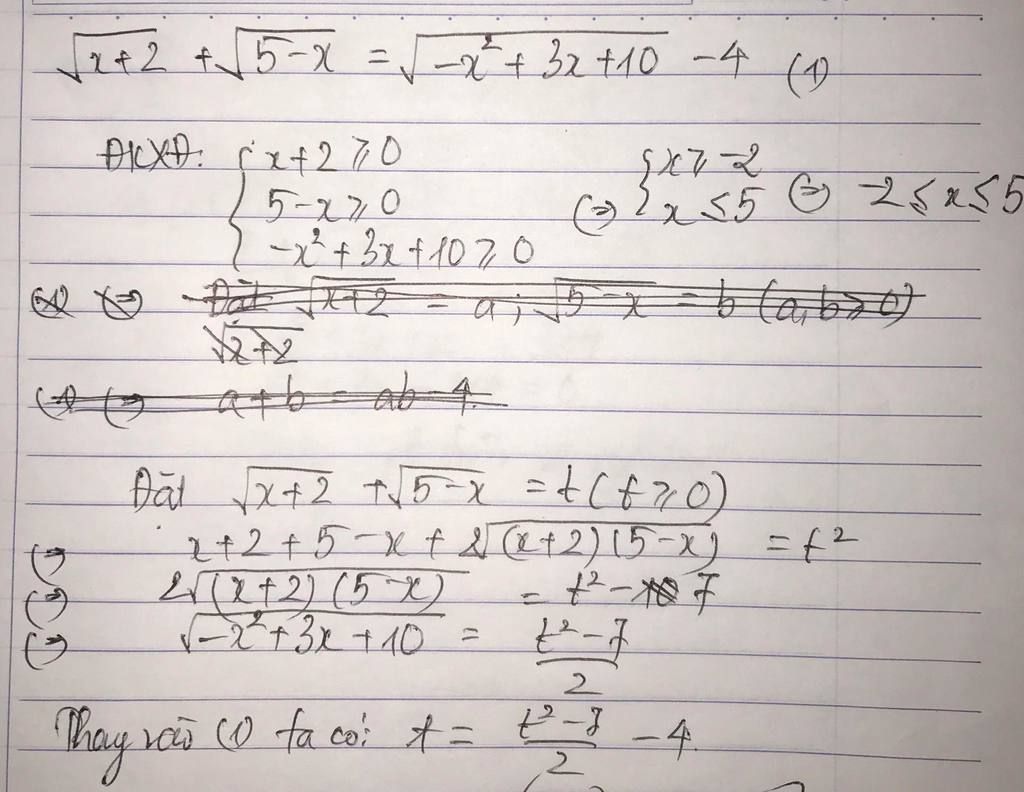 √(x+2) + √(5-x) = √(-x² + 3x + 10) - 4 (1)
ĐKXĐ: { x+2 ≥ 0 ; 5-x ≥ 0 ; -x² + 3x + 10 ≥ 0 (=) { x ≥ -2 ; x ≤ 5 (=) -2 ≤ x ≤ 5
(1) (=) Đặt √(x+2) = a ; √(5-x) = b (a, b ≥ 0)
√(x+2)
(1) (=) a + b = ab - 4.
Đặt √(x+2) + √(5-x) = t (t ≥ 0)
(=) x + 2 + 5 - x + 2√((x+2)(5-x)) = t²
(=) 2√((x+2)(5-x)) = t² - 7
(=) √(-x² + 3x + 10) = (t² - 7)/2
Thay vào (1) ta có: t = (t² - 7)/2 - 4.